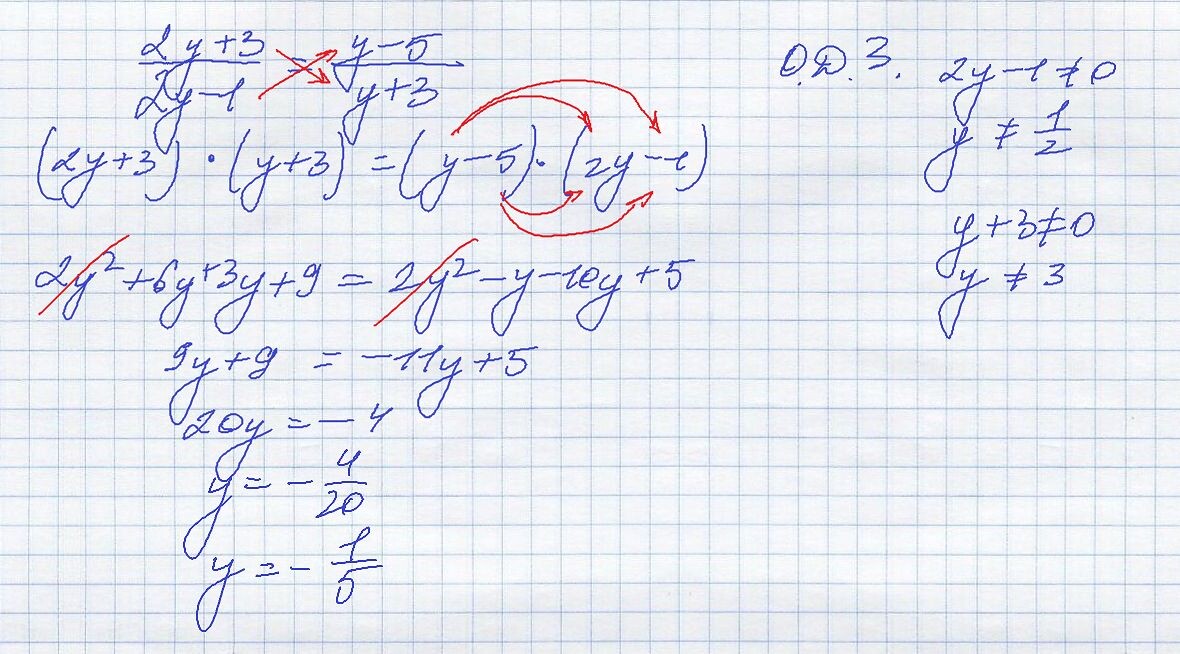 (2y+3)/(2y-1) = (y-5)/(y+3)
(2y+3) · (y+3) = (y-5) · (2y-1)
2y² + 6y + 3y + 9 = 2y² - y - 10y + 5
9y + 9 = -11y + 5
20y = -4
y = -4/20
y = -1/5
О.Д.З. 2y - 1 ≠ 0
y ≠ 1/2
y + 3 ≠ 0
y ≠ 3